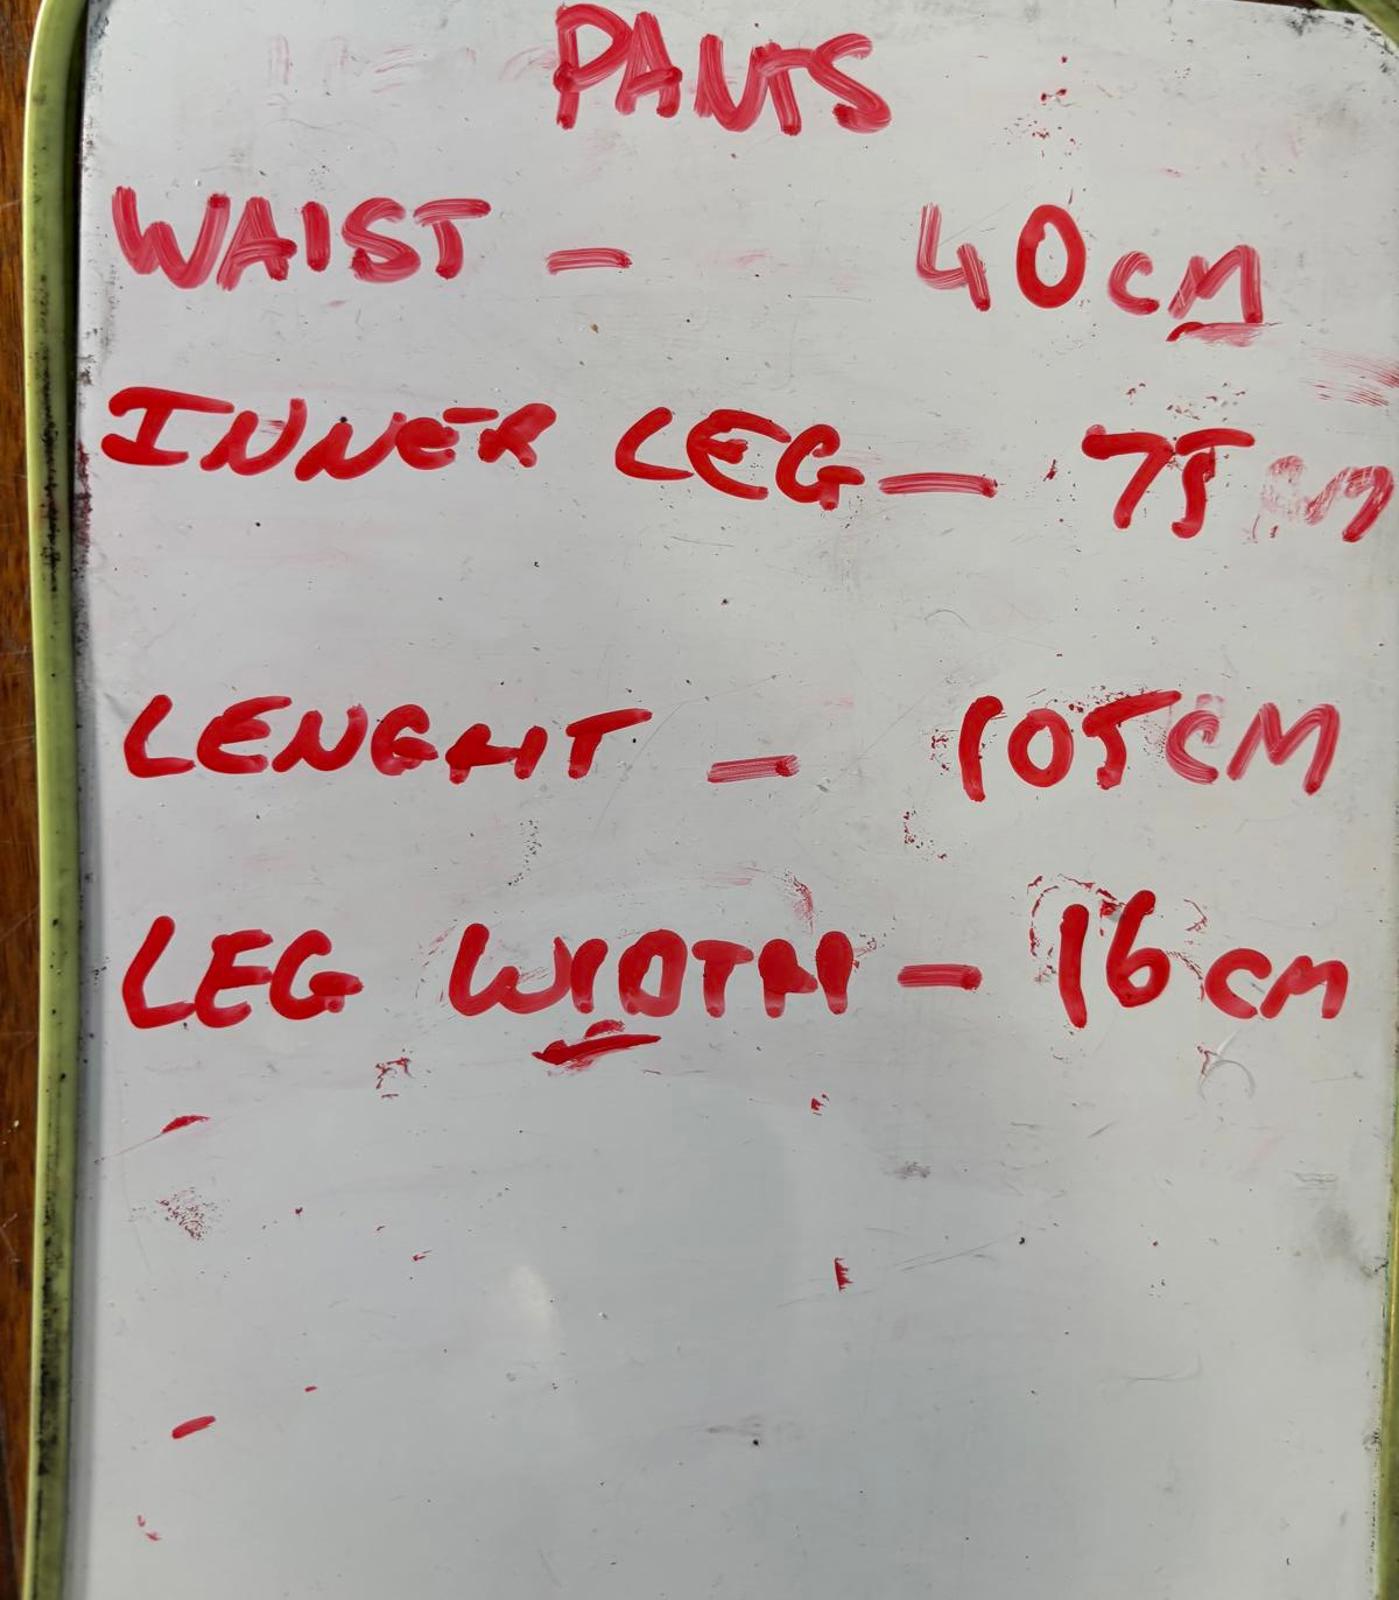 PANTS
WAIST - 40cM
INNER LEG - 75 cM
LENGHT - 105cM
LEG WIDTH - 16cm